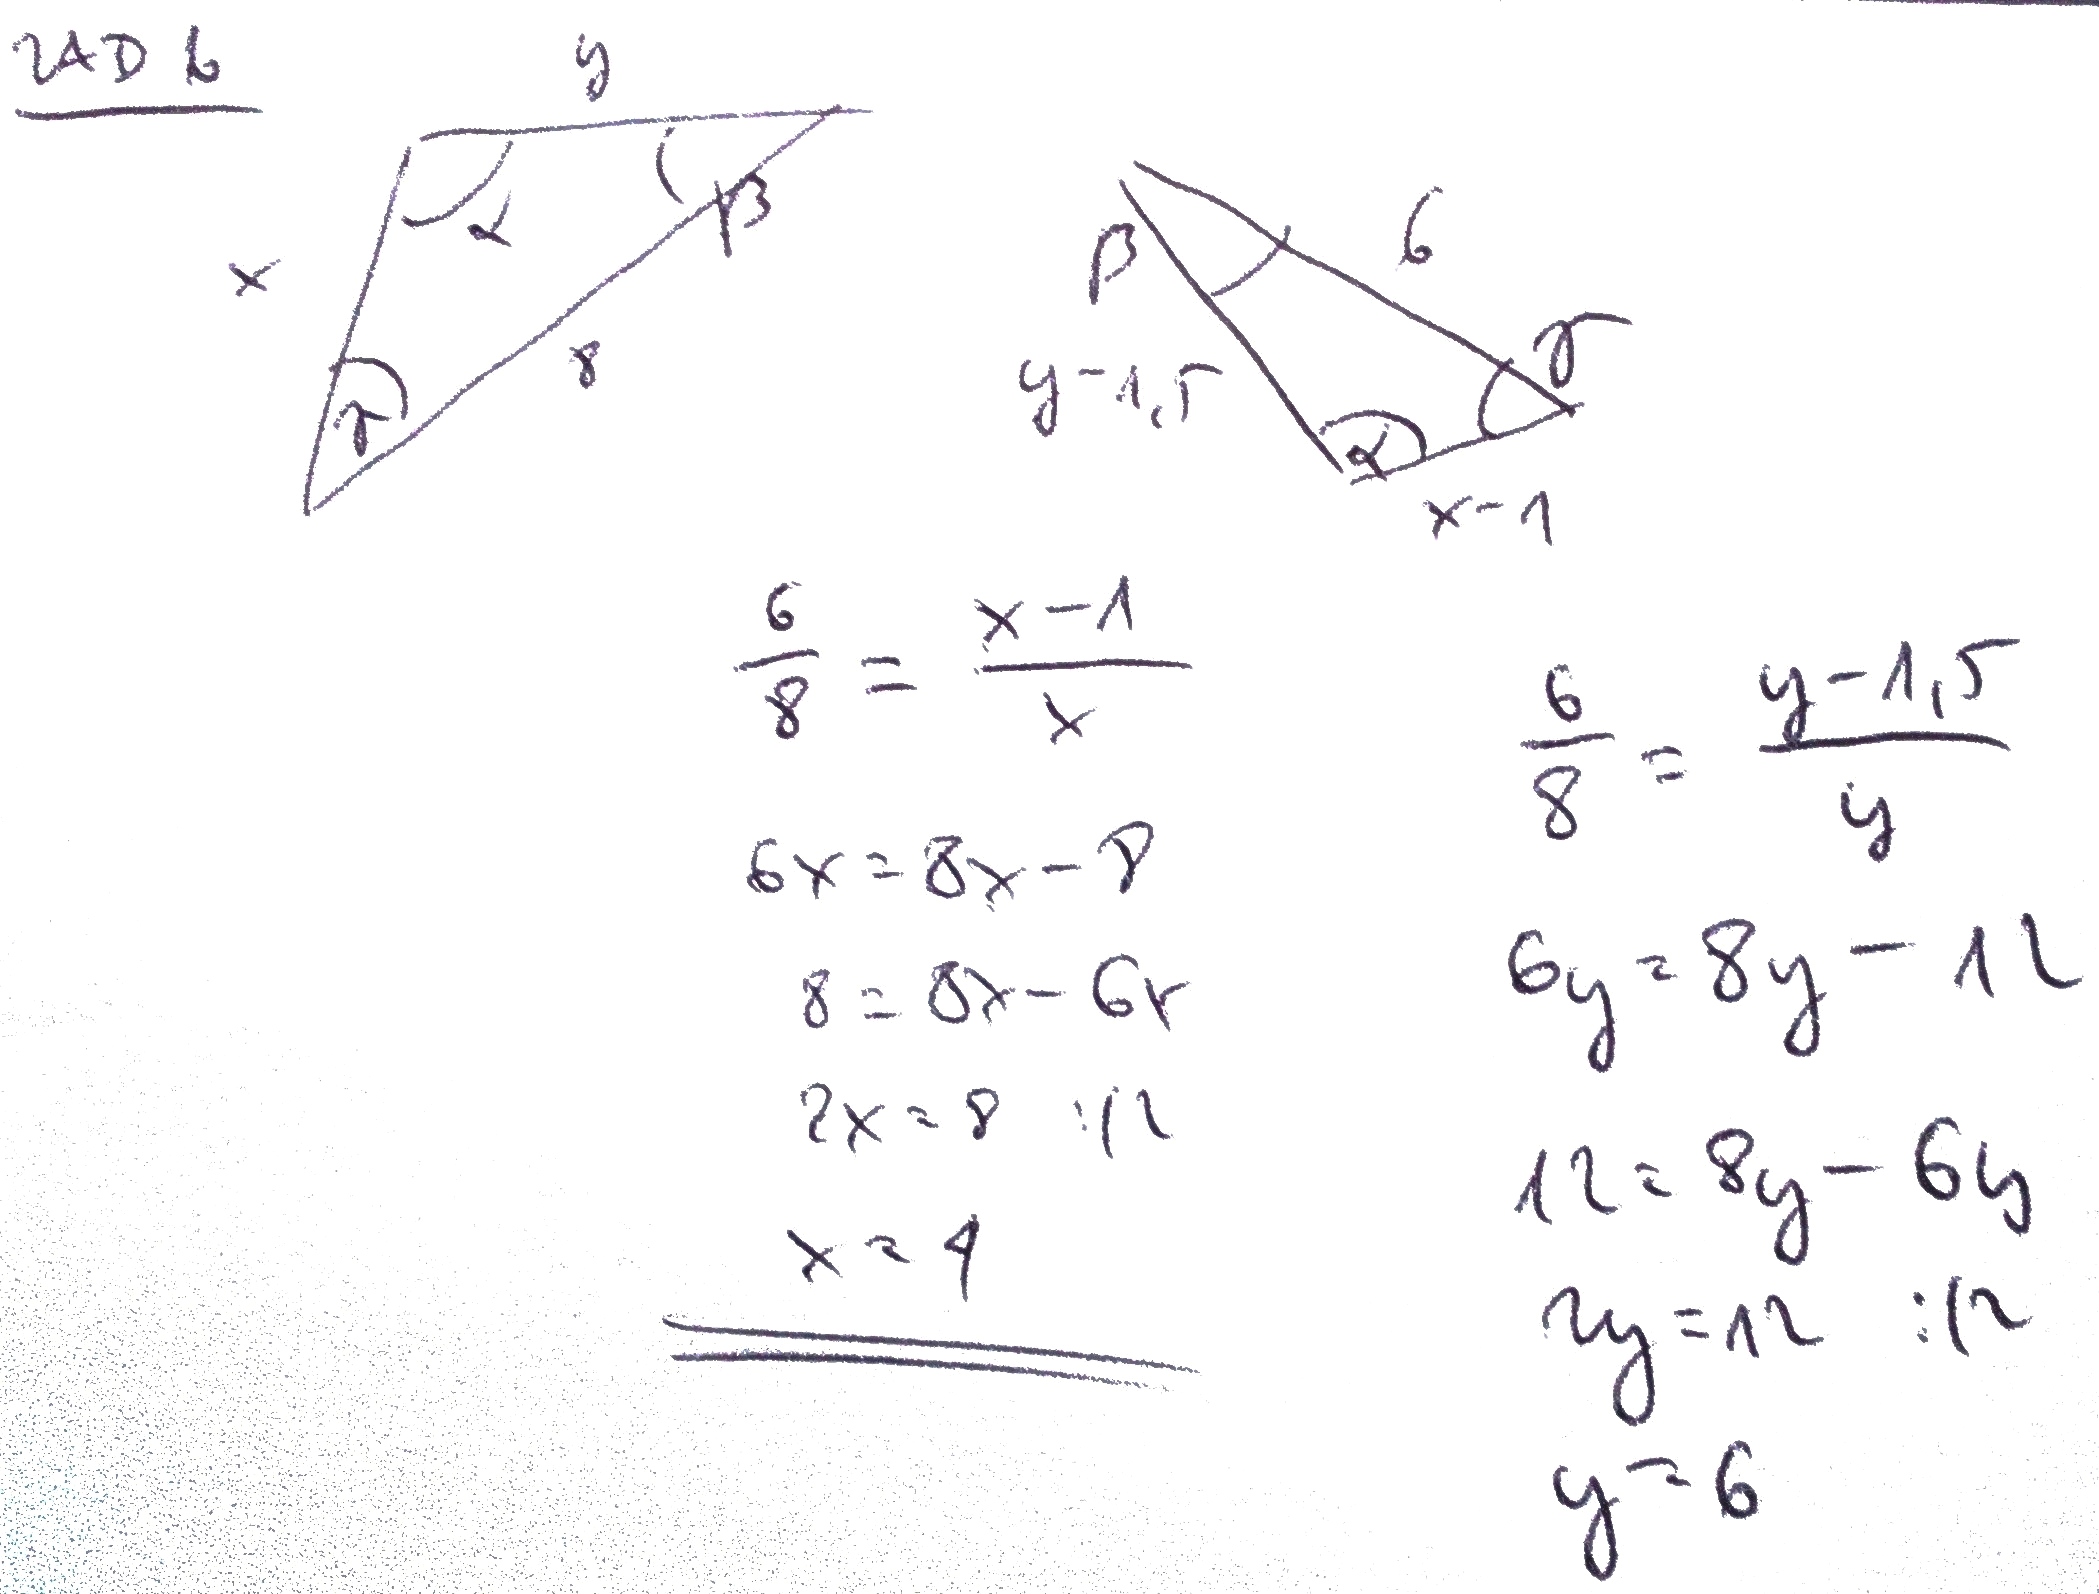 ZAD 6
y
α
β
x
8
γ
β
6
γ
y-1,5
α
x-1
6/8 = x-1/x
6x = 8x - 8
8 = 8x - 6x
2x = 8 :/2
x = 4
6/8 = y-1,5/y
6y = 8y - 12
12 = 8y - 6y
2y = 12 :/2
y = 6